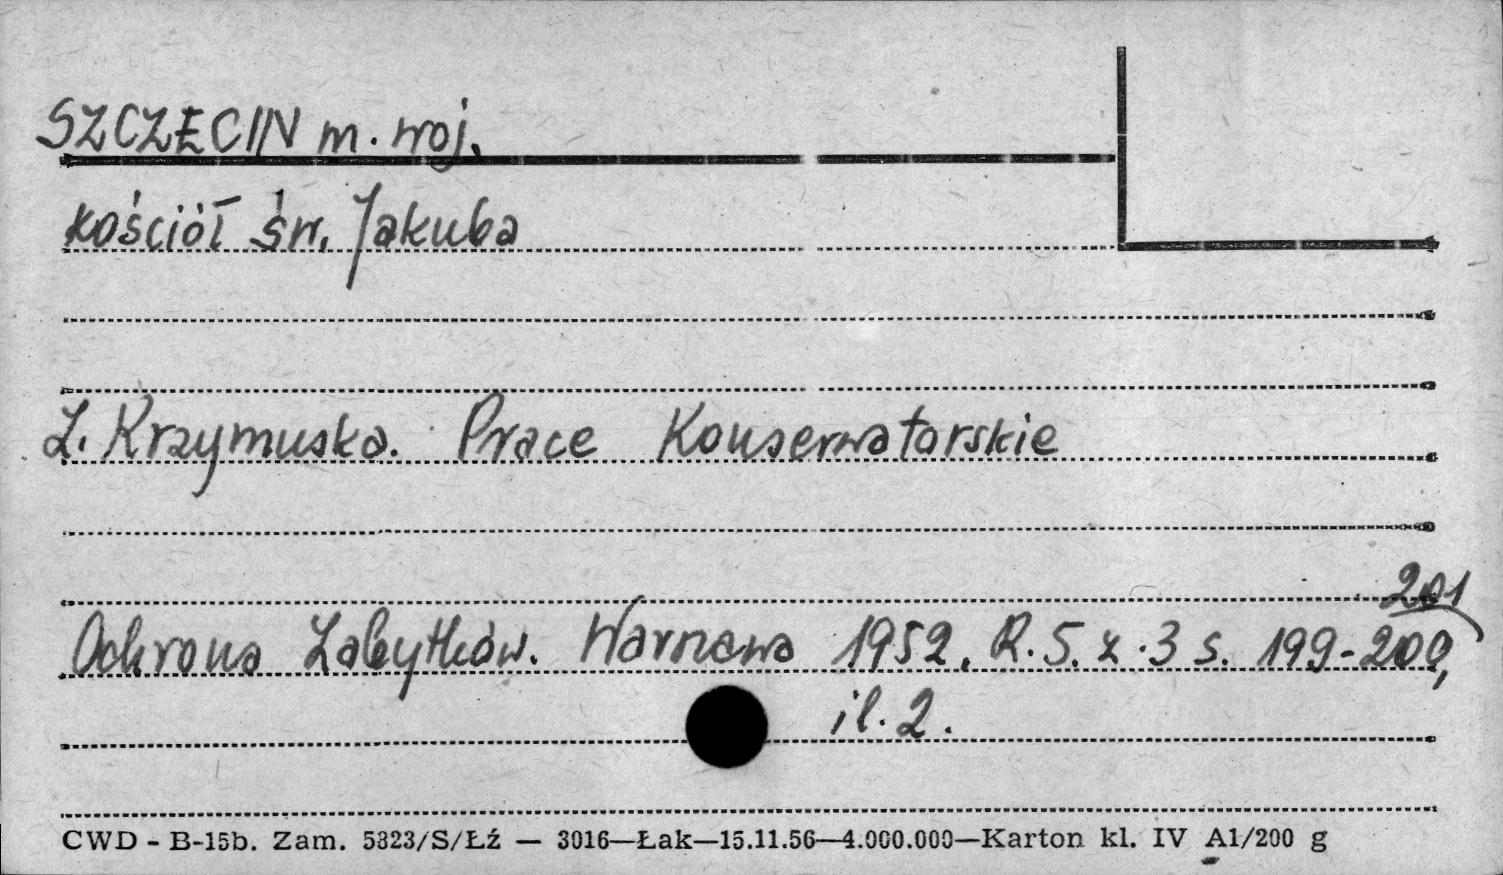 SZCZECIN m. woj.
kościół św. Jakuba
Z. Krzymuska. Prace Konserwatorskie
201
Ochrona Zabytków. Warszawa 1952. R. 5. z. 3 s. 199-200,
il. 2.
CWD - B-15b. Zam. 5823/S/Łź — 3016—Łak—15.11.56—4.000.000—Karton kl. IV A1/200 g